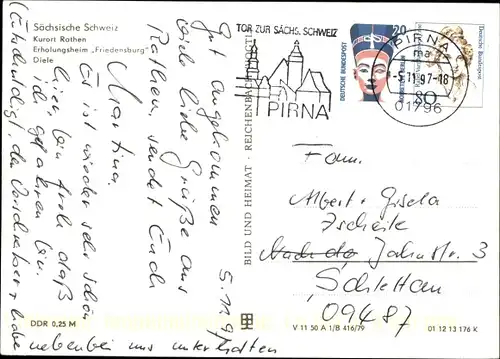 Sächsische Schweiz
Kurort Rathen
Erholungsheim „Friedensburg"
Diele
5.11.97
Gut angekommen
liebe Grüße aus
Rathen, sendet Euch
Martina.
Es ist wieder sehr schön
hier, bin froh daß
ich gefahren bin.
(Entschuldigt, die Vorschreiber, habe
nebenbei uns unterhalten
DDR 0,25 M
BILD UND HEIMAT · REICHENBACH (VOGTL)
TOR ZUR SÄCHS. SCHWEIZ
PIRNA
20
DEUTSCHE BUNDESPOST
80
Deutsche Bundespost
PIRNA
ma
-5.11.97-18
01796
Fam.
Albert + Gisela
Zscheile
Jahnstr. 3
Schlettau
09487
V 11 50 A 1/B 416/79
01 12 13 176 K